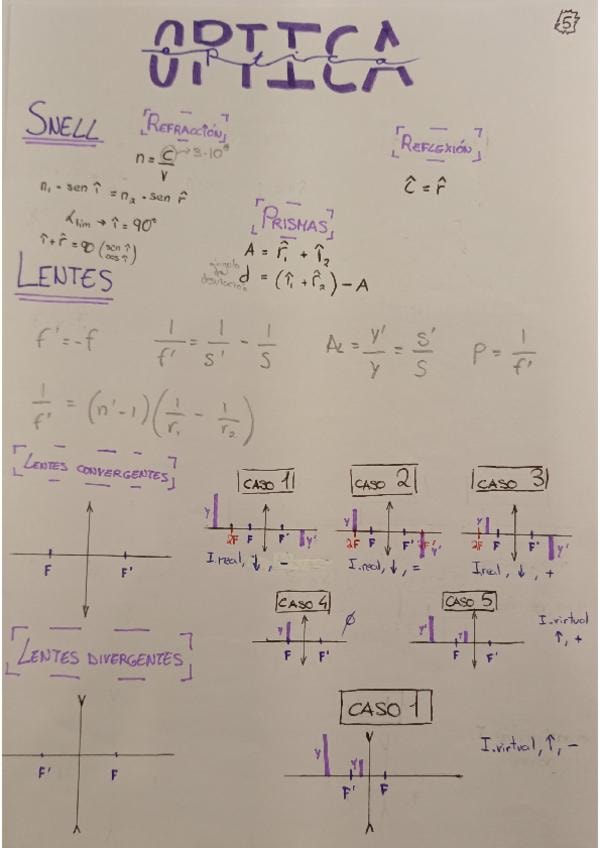 5
ÓPTICA
óptica
SNELL
REFRACCIÓN
n = c/v → 3·10⁸
n₁ · sen î = n₂ · sen r̂
αlim → î = 90°
î + r̂ = 90 (sen î / cos î)
REFLEXIÓN
î = r̂
PRISMAS
A = r̂₁ + î₂
ángulo de desviación d = (î₁ + r̂₂) − A
LENTES
f' = -f
1/f' = 1/s' − 1/s
AL = y'/y = s'/s
P = 1/f'
1/f' = (n' − 1)(1/r₁ − 1/r₂)
LENTES CONVERGENTES
F F'
CASO 1
y 2F F F' y'
I.real, ↓, −
CASO 2
y 2F F F' 2F' y'
I.real, ↓, =
CASO 3
2F y F F' y'
I.real, ↓, +
CASO 4
y F F' ∅
CASO 5
y' F y F'
I.virtual
↑, +
LENTES DIVERGENTES
F' F
CASO 1
y y' F' F
I.virtual, ↑, −